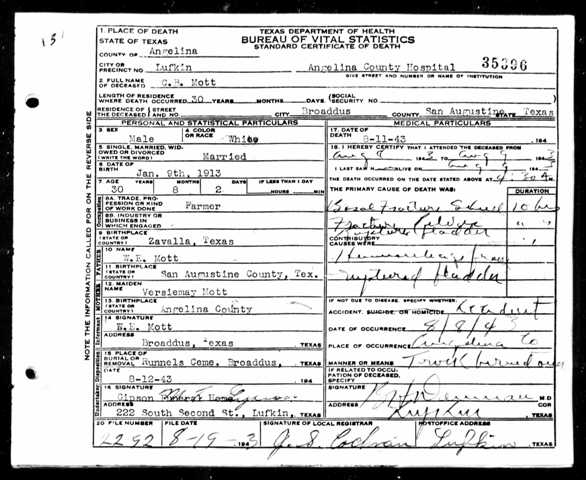 TEXAS DEPARTMENT OF HEALTH
BUREAU OF VITAL STATISTICS
STANDARD CERTIFICATE OF DEATH
1. PLACE OF DEATH
STATE OF TEXAS
COUNTY OF Angelina
CITY OR PRECINCT NO. Lufkin Angelina County Hospital 35396
GIVE STREET AND NUMBER OR NAME OF INSTITUTION
2 FULL NAME OF DECEASED C.B. Mott
LENGTH OF RESIDENCE WHERE DEATH OCCURRED 30 YEARS MONTHS DAYS (SOCIAL SECURITY NO.
RESIDENCE OF THE DECEASED STREET NO. Broaddus COUNTY San Augustine STATE Texas
PERSONAL AND STATISTICAL PARTICULARS
3 SEX Male 4 COLOR OR RACE White
5 SINGLE, MARRIED, WIDOWED OR DIVORCED (WRITE THE WORD) Married
6 DATE OF BIRTH Jan. 9th. 1913
7 AGE YEARS MONTHS DAYS IF LESS THAN 1 DAY
30 8 2 HOURS MIN
8A. TRADE, PROFESSION OR KIND OF WORK DONE Farmer
8B. INDUSTRY OR BUSINESS IN WHICH ENGAGED
9 BIRTHPLACE (STATE OR COUNTRY) Zavalla, Texas
10 NAME W.E. Mott
11 BIRTHPLACE (STATE OR COUNTRY) San Augustine County, Tex.
12 MAIDEN NAME Versiemay Mott
13 BIRTHPLACE (STATE OR COUNTRY) Angelina County
14 SIGNATURE W.E. Mott
ADDRESS Broaddus, Texas TEXAS
15 PLACE OF BURIAL OR REMOVAL Runnels Ceme. Broaddus, TEXAS
DATE 8-12-43 194
16 SIGNATURE Gipson Funeral Home
ADDRESS 222 South Second St., Lufkin, TEXAS
MEDICAL PARTICULARS
17. DATE OF DEATH 8-11-43 194
18. I HEREBY CERTIFY THAT I ATTENDED THE DECEASED FROM
Aug 8
I LAST SAW ALIVE ON
THE DEATH OCCURRED ON THE DATE STATED ABOVE AT
THE PRIMARY CAUSE OF DEATH WAS: DURATION
Basal Fracture Skull 10 hrs
Fracture Pelvis " "
CONTRIBUTORY CAUSES WERE:
Hemorrhage from
ruptured bladder
IF NOT DUE TO DISEASE, SPECIFY WHETHER:
ACCIDENT, SUICIDE, OR HOMICIDE Accident
DATE OF OCCURRENCE 8/8/43
PLACE OF OCCURRENCE Angelina Co
MANNER OR MEANS Truck turned over
IF RELATED TO OCCUPATION OF DECEASED, SPECIFY
SIGNATURE M D
ADDRESS Lufkin TEXAS
20 FILE NUMBER DATE SIGNATURE OF LOCAL REGISTRAR POSTOFFICE ADDRESS
4292 8-19-1943 J.S. Cochran Lufkin, TEXAS
NOTE THE INFORMATION CALLED FOR ON THE REVERSE SIDE
Occupation
FATHER
MOTHER
Informant
Undertaker